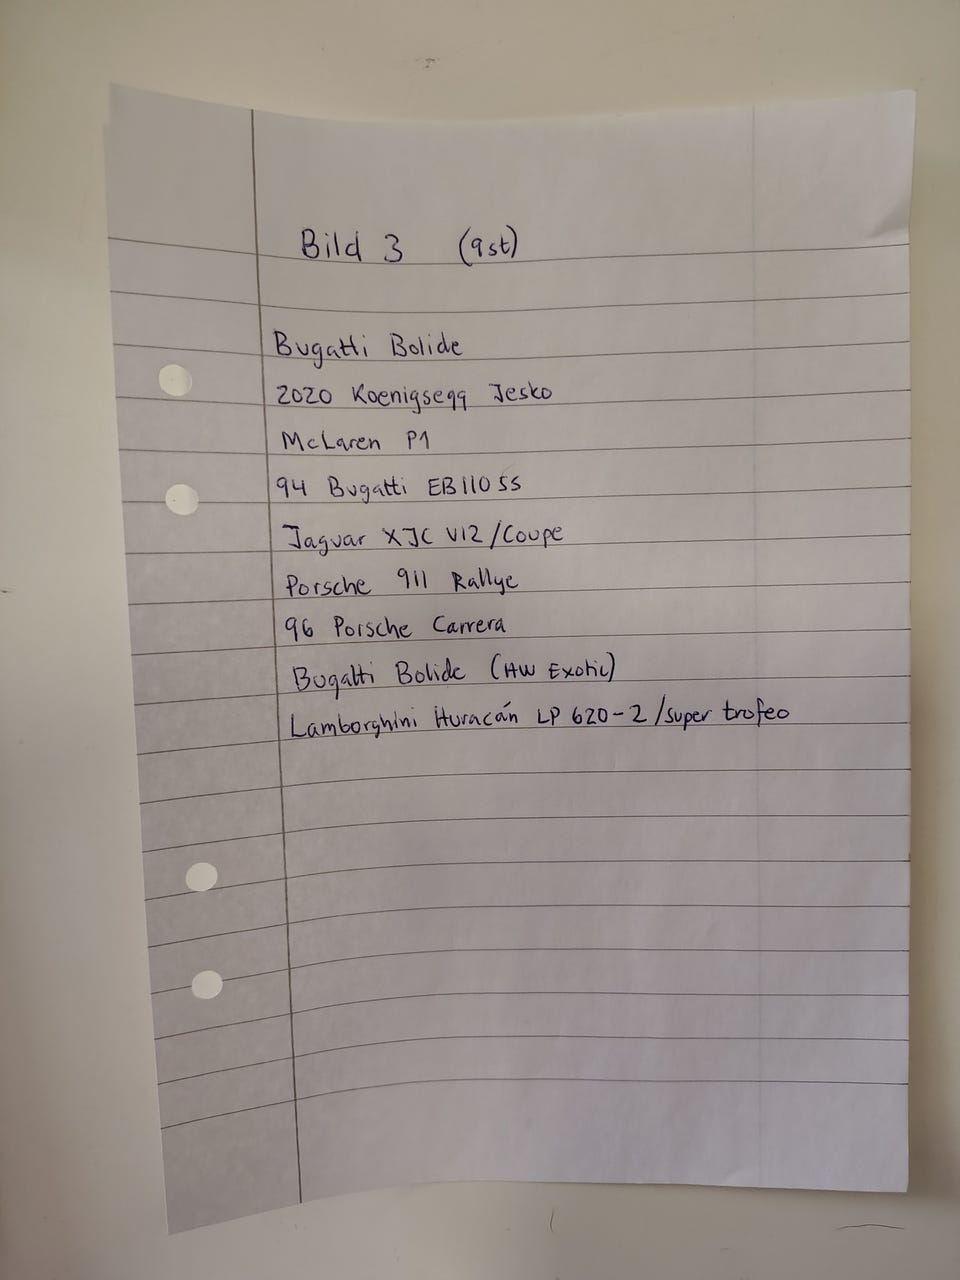 Bild 3 (9st)
Bugatti Bolide
2020 Koenigsegg Jesko
McLaren P1
94 Bugatti EB110 SS
Jaguar XJC V12/Coupe
Porsche 911 Rallye
96 Porsche Carrera
Bugatti Bolide (HW Exotic)
Lamborghini Huracán LP 620-2/super trofeo